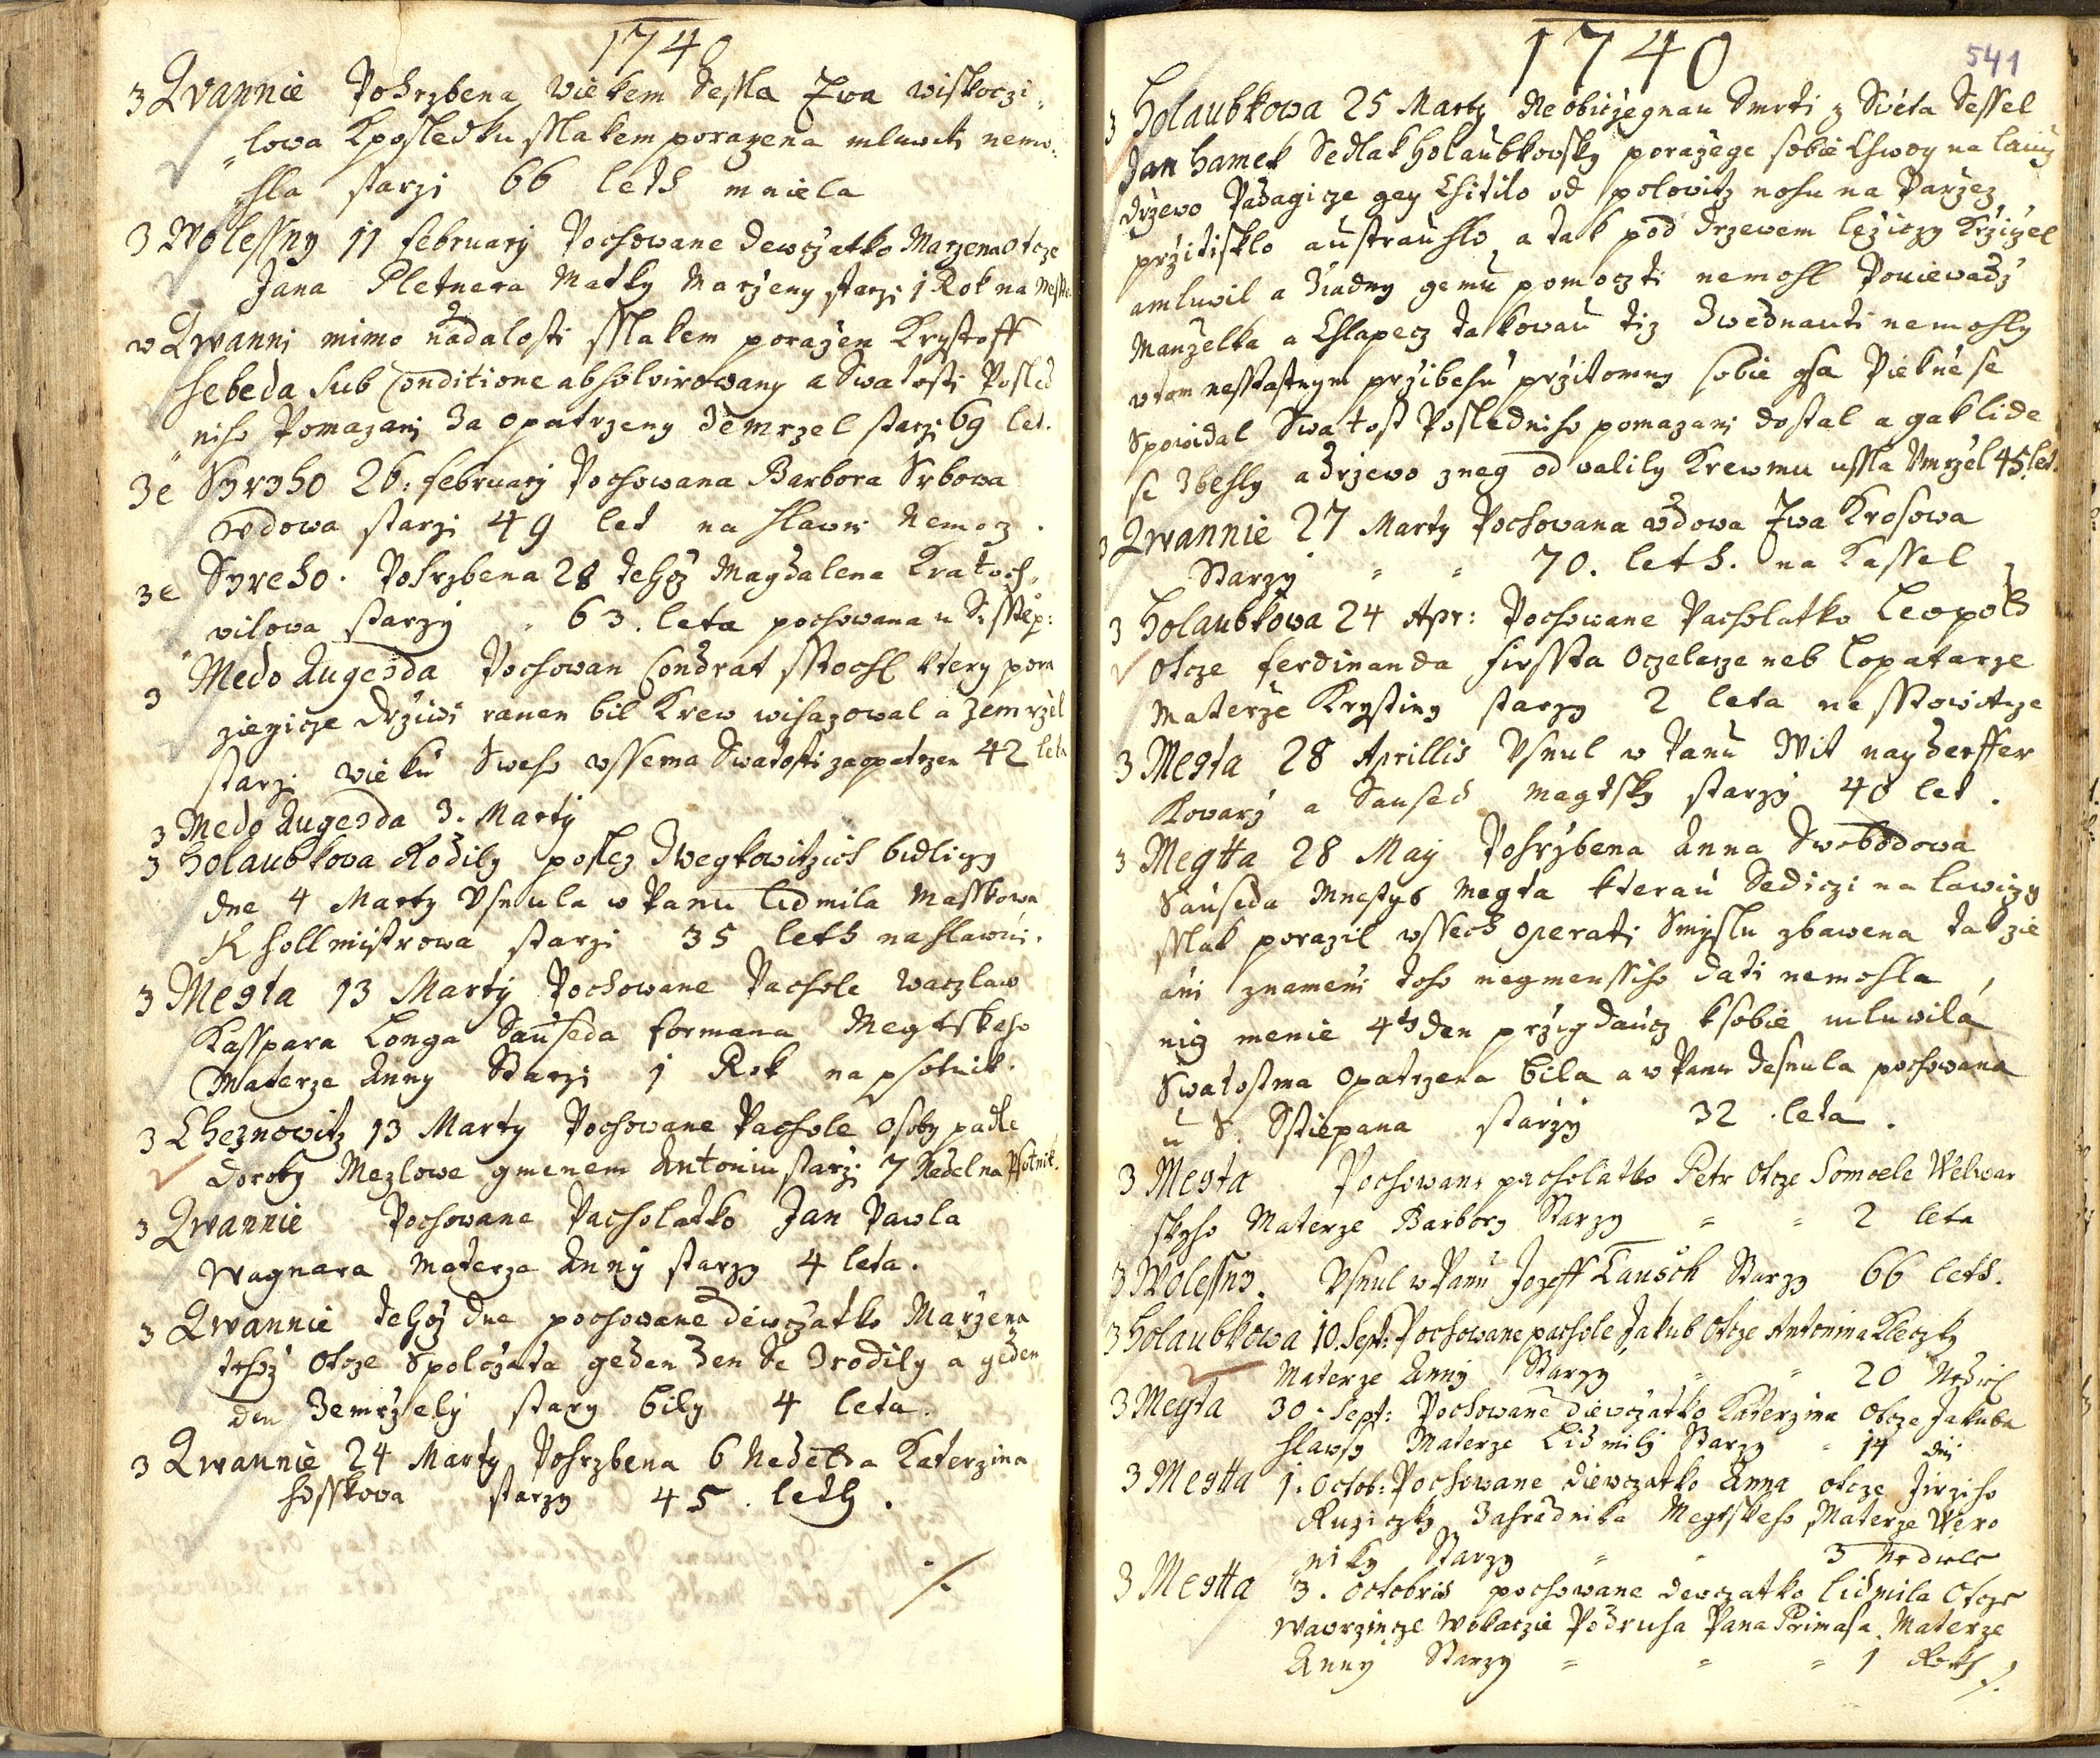 1740
3 Qvannie Pohrzbena Wiekem Sessla Ewa wiskoczi„
„lowa kposledku sslakem porazena mluwiti nemo„
„hla starzi 66 leth mniela
3 Wolessny 11 february Pochowane dewczatko Marzena otcze
Jana Pletnera Matky Marzeny starzi 1 Rok na
w Qwanni mimo nadalosti sslakem porazen Krystoff
hebeda sub Conditione absolvirowany a Swatosti Posled
niho Pomazani za opatrzeny Zemrzel starzi 69 let.
3e Syrzho 26. february Pochowana Barbora Srbowa
wdowa starzi 49 let na hlawni Nemocz.
3e Syreho. Pohrzbena 28 tehoz Magdalena Kratoch„
wilowa starzy 63. leta pochowana u S. Sstep:
3 Medo Augezda Pochowan Condrat sstochl ktery pora
zegicze drziwi ranen bil Krew wihazowal a zemrzel
starzi wieku Sweho wssema Swatosti zaopatrzen 42 leta
3 Medo Augezda 3. Marty
3 Holaubkowa Rodily poslez Dwegkowitzich bidliczy
dne 4 Marty Usnula w Panu lidmila Masskowa
K hollmistrowa starzi 35 leth na hlawni.
3 Megta 13 Marty Pochowane Pachole Waczlaw
Kasspara Longa Sauseda formana Megtskeho
Materze Anny Starzi 1 Rok na psotnik.
3 Cheznowitz 13 Marty Pochowane Pachole Osoby padle
Doroty Mezlowe gmenem Antonin starzi 7 Nedel na Psotnik.
3 Qwannie Pochowane Pacholatko Jan Pawla
Wagnara Materze Anny starzy 4 leta.
3 Qwannie tehoz dne pochowane diewczatko Marzena
tehoz Otcze Spolozata geden den Se Zrodily a geden
den Zemrzely stary bily 4 leta.
3 Qwannie 24 Marty Pohrzbena 6 Nedelka Katerzina
hosskowa starzy 45. leth.
./.
1740
541
3 Holaubkowa 25 Marty Neobiczegnau Smrti z Swéta Sessel
Jan Hamek Sedlak Holaubkowsky porazege sobie Chwog na
drzewo Padagicze gey Chitilo od polowitz nohu na Parzez
przitisklo a a tak pod drzewem leziczy Krziczel
amluwil a ziadny gemu pomoczti nemohl Poniewadz
Manzelka a Chlapecz takowau tiz Zwednauti nemohly
wtom nesstastnym przibehu przitomny sobie gsa Piekne se
Spowidal Swatost Posledniho pomazani dostal a gak lide
se Zbehly a drzewo zneg odwalily Krewmu ussla Umrzel 45. let.
3 Qwannie 27 Marty Pochowana wdowa Ewa Krosowa
Starzy " " 70. leth. na Kassel
3 Holaubkowa 24 Apr: Pochowane Pacholatko Leopold
Otcze ferdinanda Firssta Oczelarze neb Lopatarze
Materze Krystiny starzy 2 leta nesstowitcze
3 Megta 28 Aprillis Usnul w Panu Wit nayderffer
Kowarz a Saused Megtsky starzy 40 let.
3 Megtta 28 May Pohrzbena Anna Swobodowa
Sauseda Mnestys Megta kterau Sediczi na lawiczy
sslak porazil wssech operati Smyslu zbawena tak zie
ani znameni toho negmenssiho dati nemohla,
niz menie 4th den przigdaucz ksobie mluwila
Swatostma Opatrzena bila a w Panu Zesnula pochowana
u S. Sstiepana starzy 32 leta.
3 Megta Pochowane pacholatko Petr Otcze Samoele Welwar
skyho Materze Barbory Starzy " " 2 leta
3 Wolessny. Usnul w Panu Jozeff Tausch Starzy 66 leth.
3 Holaubkowa 10. Sept: Pochowane pachole Jakub Otcze Antonina Kleczky
Materze Anny Starzy " " 20 Nediel
3 Megta 30. Sept: Pochowane diewczatko Katerzina Otcze Jakuba
Materze Lidmily Starzy " 14 dni
3 Megtta 1. Octob: Pochowane diewczatko Anna otcze Jirziho
Ruziczky Zahradnika Megtskeho Materze Wero
niky Starzy " " 3 Nediele
3 Megtta 3. Octobris pochowane dewczatko lidmila Otcze
Wawrzincze Wokaczie Podruha Pana Primasa Materze
Anny Starzy " " " 1 Rok ./.